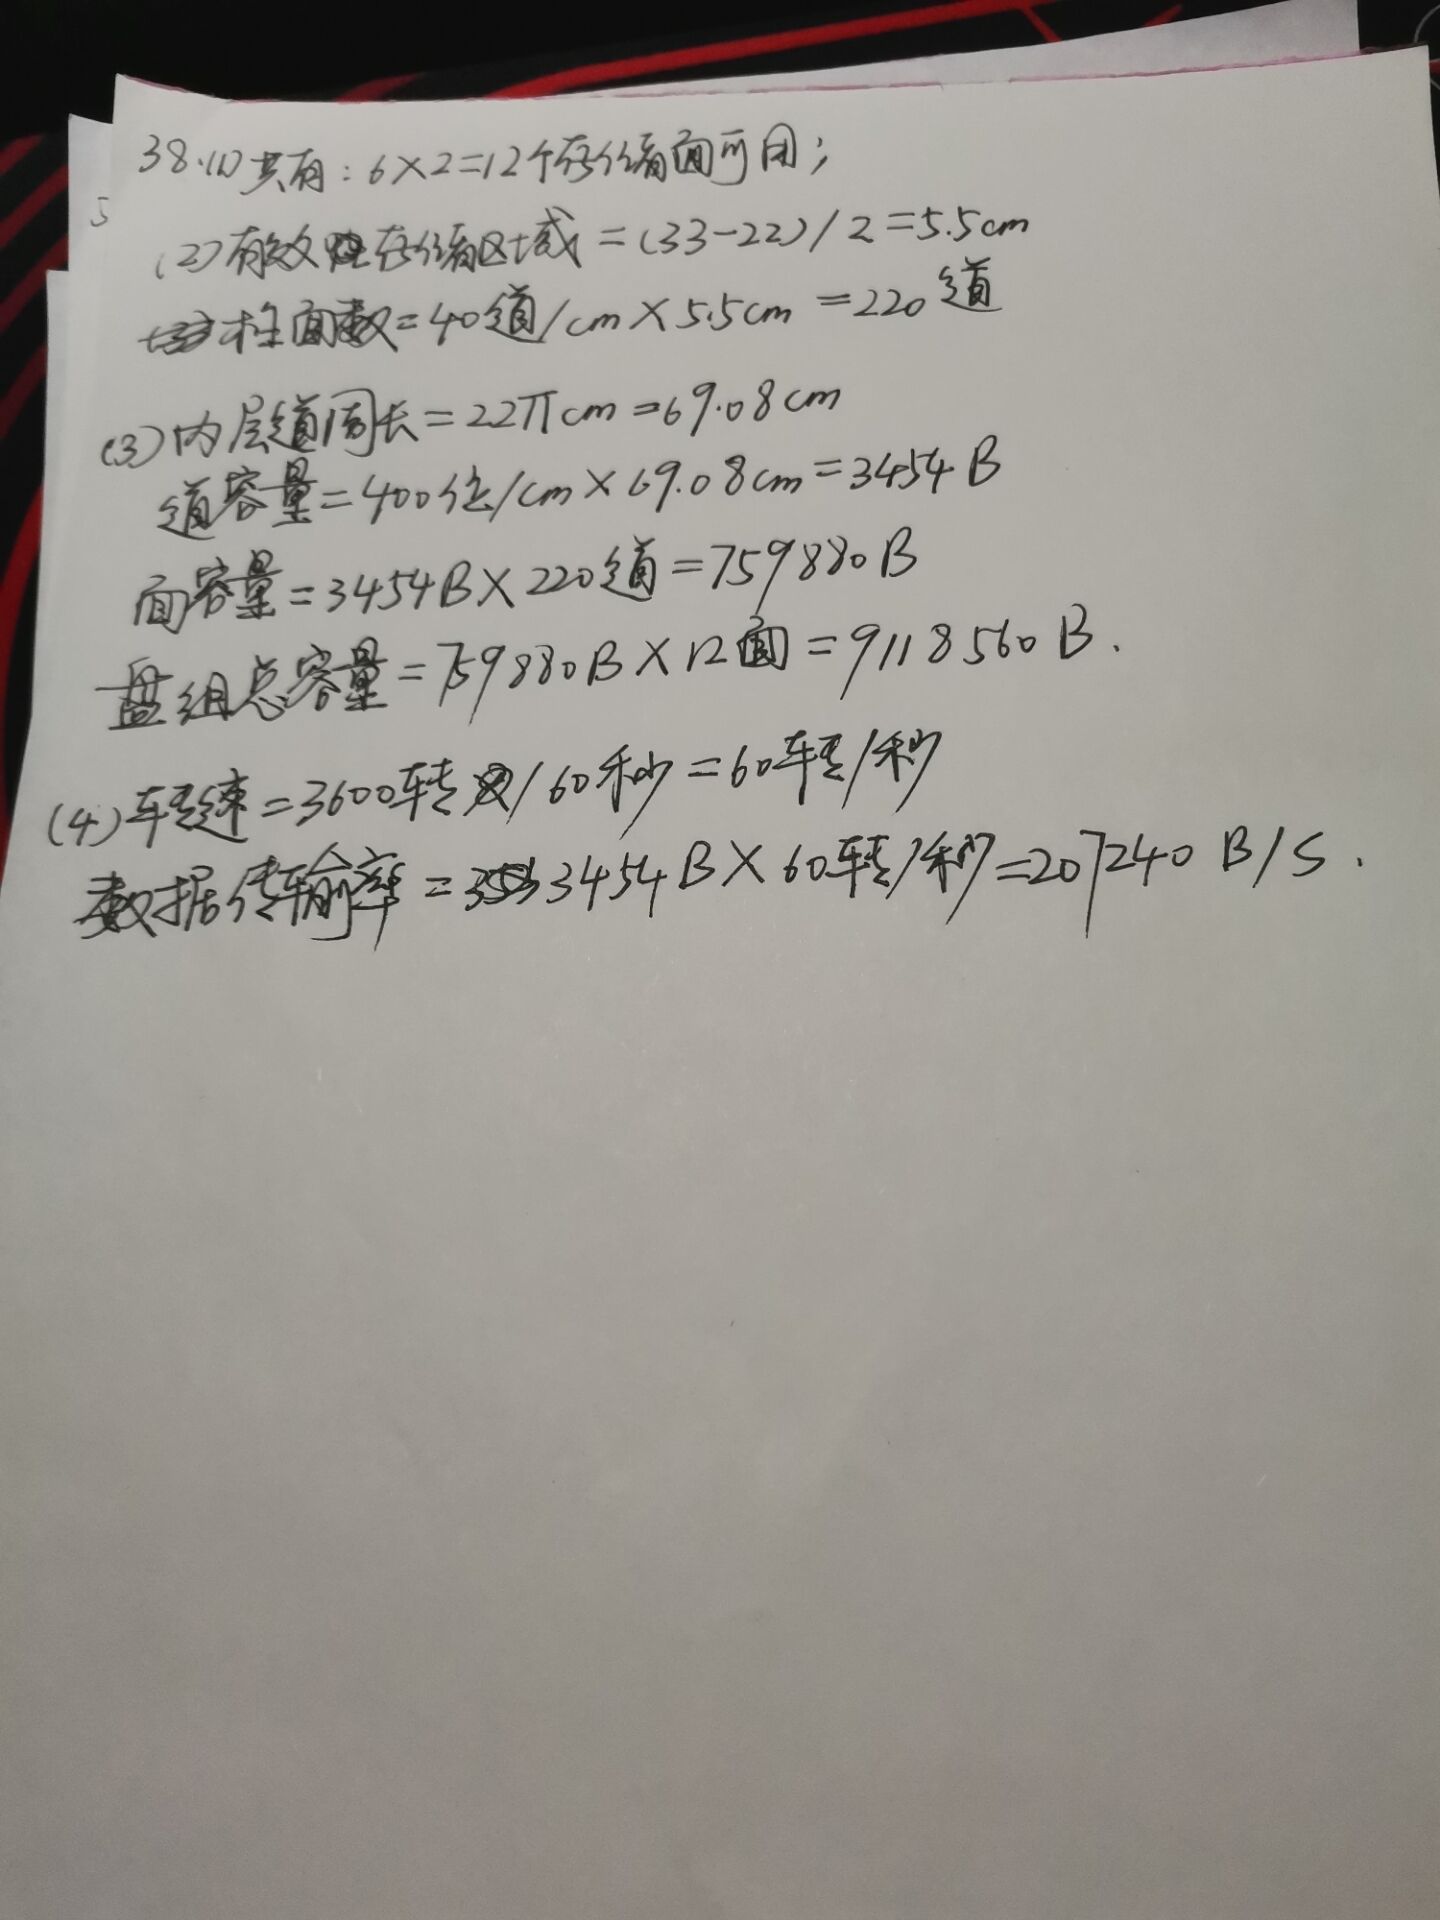 38.(1)共有：6×2=12个存储面可用；
5
(2)有效存储区域=(33-22)/2=5.5cm
柱面数=40道/cm×5.5cm=220道
(3)内层道周长=22πcm=69.08cm
道容量=400位/cm×69.08cm=3454B
面容量=3454B×220道=759880B
盘组总容量=759880B×12面=9118560B.
(4)转速=3600转/60秒=60转/秒
数据传输率=3454B×60转/秒=207240B/S.